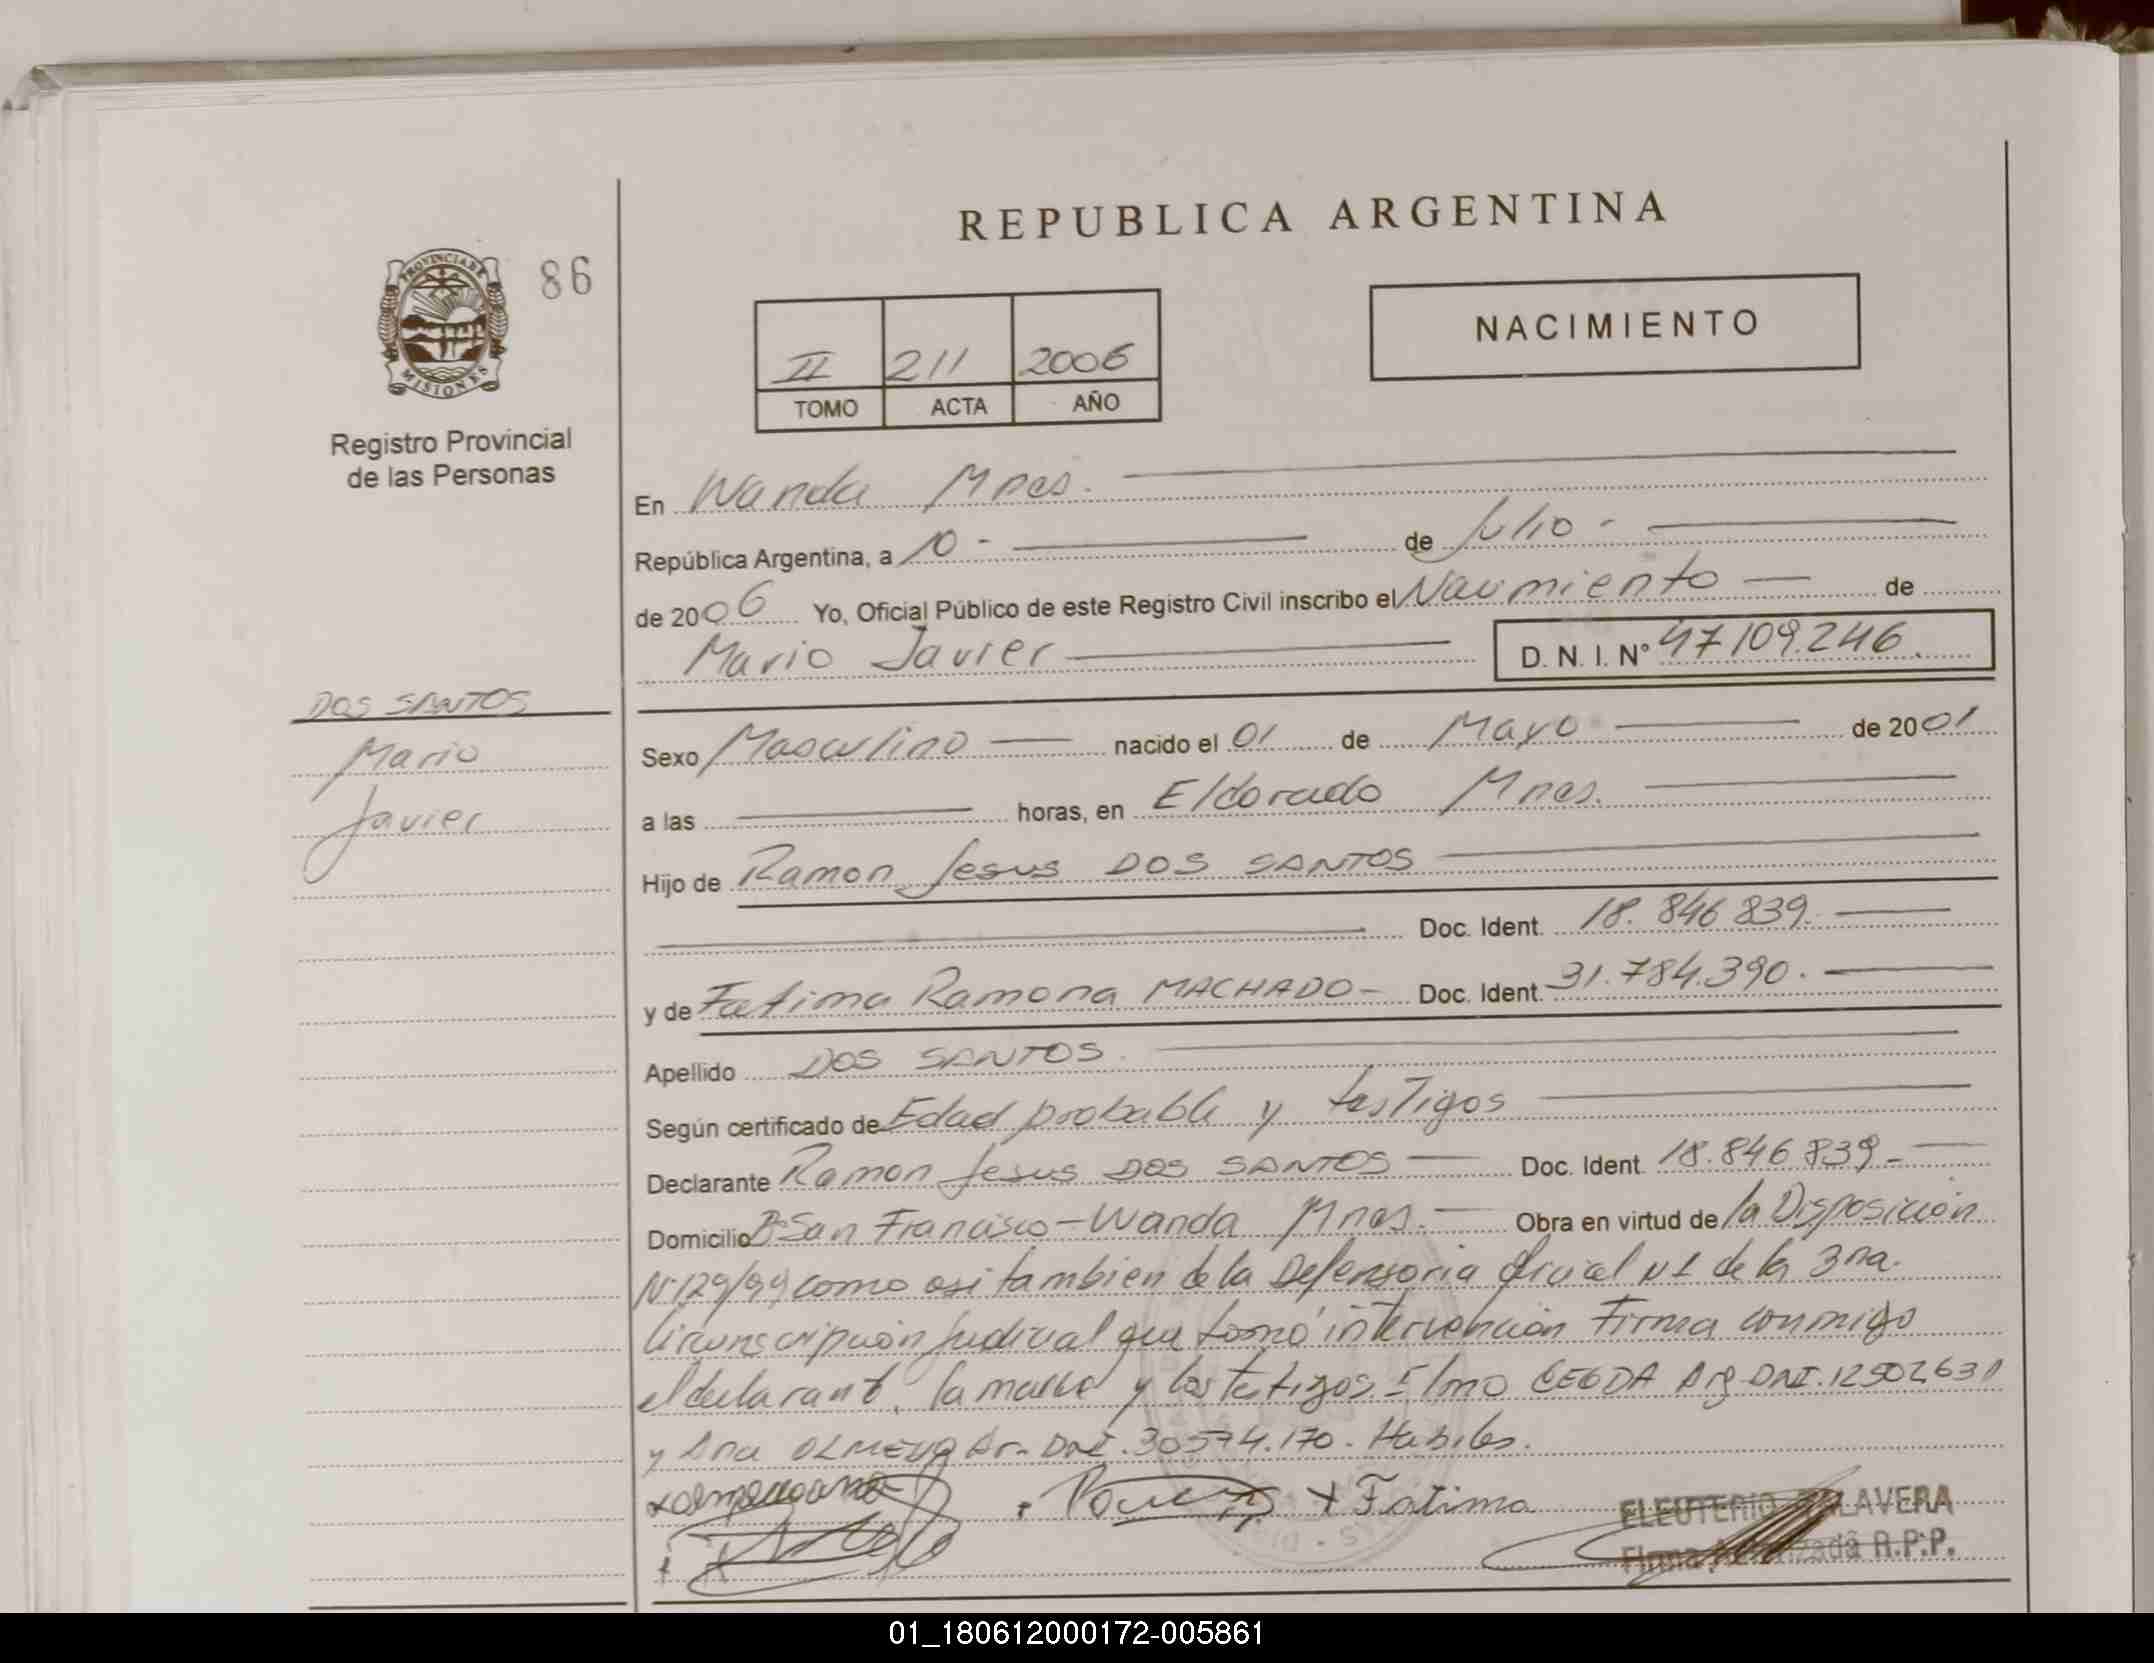 REPUBLICA ARGENTINA
PROVINCIA DE
MISIONES
86
Registro Provincial
de las Personas
NACIMIENTO
II 211 2006
TOMO ACTA AÑO
En Wanda Mnes.
República Argentina, a 10 - de Julio -
de 2006 Yo, Oficial Público de este Registro Civil inscribo el Nacimiento de
Mario Javier D. N. I. N° 47109.246.
DOS SANTOS
Mario
Javier
Sexo Masculino nacido el 01 de Mayo de 2001
a las horas, en Eldorado Mnes.
Hijo de Ramon Jesus DOS SANTOS
Doc. Ident. 18.846 839.
y de Fatima Ramona MACHADO - Doc. Ident. 31.784.390.
Apellido DOS SANTOS.
Según certificado de Edad probable y testigos
Declarante Ramon Jesus DOS SANTOS Doc. Ident. 18.846 839 -
Domicilio B° San Francisco - Wanda Mnes. - Obra en virtud de la Disposición
N° 129/99 como asi tambien de la Defensoria oficial N 1 de la 3ra.
Circunscripción Judicial que tomó intervención Firma conmigo
el declarante, la madre y los testigos Elmo Arg DNI. 12502631
y Ana OLMEDO Ar. DNI. 30574.170. Habiles.
x Fatima
ELEUTERIO TALAVERA
Firma Autorizada R.P.P.
01_180612000172-005861